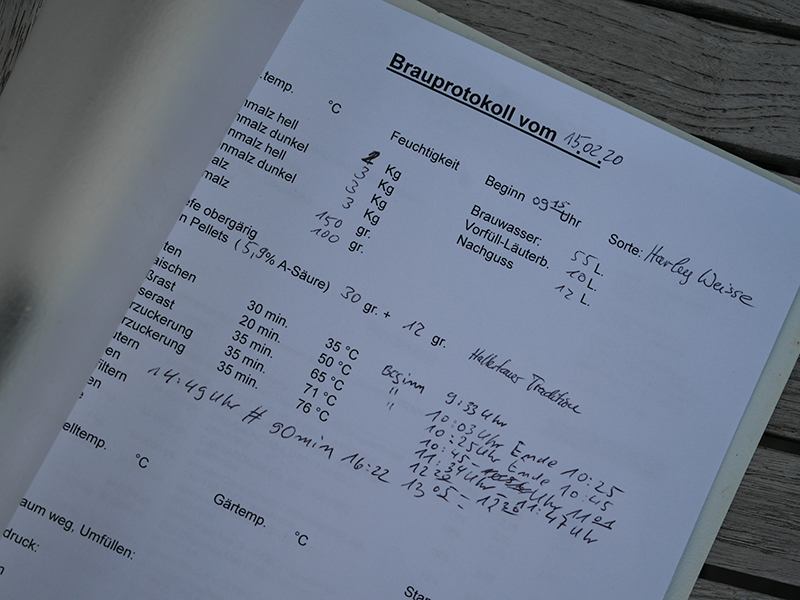 Brauprotokoll vom 15.02.20
.temp.
°C
Feuchtigkeit
Beginn 09 15 Uhr
Sorte: Harley Weisse
nmalz hell
Kg
nmalz dunkel 3 Kg
nmalz hell 3 Kg
nmalz dunkel 3 Kg
alz 150 gr.
malz 100 gr.
Brauwasser: 55 L.
Vorfüll-Läuterb. 10 L.
Nachguss 12 L.
efe obergärig
n Pellets (5,9% A-Säure) 30 gr. + 12 gr. Hallertauer Tradition
ten
aischen 30 min. 35 °C Beginn 9:33 Uhr
ßrast 20 min. 50 °C " 10:03 Uhr Ende 10:25
serast 35 min. 65 °C " 10:25 Uhr Ende 10:45
rzuckerung 35 min. 71 °C 10:45 - Uhr 11 01
rzuckerung 35 min. 76 °C 11:34 Uhr - 11:47 Uhr
utern
en
filtern 14:49 Uhr # 90 min 16:22 13 05 -
en
elltemp.
°C
Gärtemp.
°C
aum weg, Umfüllen:
druck: